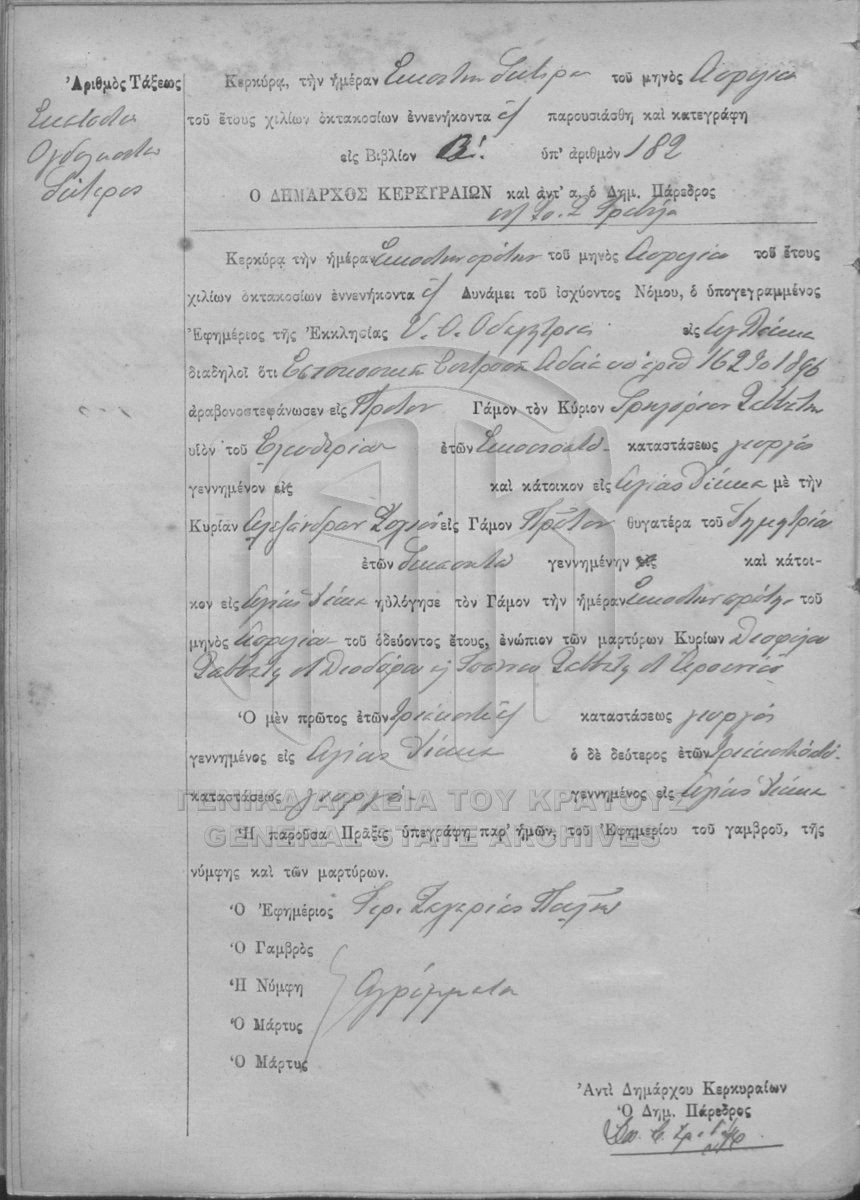 Ἀριθμὸς Τάξεως
Εκατοστὸν
Ογδοηκοστὸν
Δεύτερον
Κερκύρᾳ, τὴν ἡμέραν Εικοστην Δευτέραν τοῦ μηνὸς Απριλίου
τοῦ ἔτους χιλίων ὀκτακοσίων ἐννενήκοντα ἓξ παρουσιάσθη καὶ κατεγράφη
εἰς Βιβλίον Β'. ὑπ' ἀριθμὸν 182
Ο ΔΗΜΑΡΧΟΣ ΚΕΡΚΥΡΑΙΩΝ καὶ ἀντ' α, ὁ Δημ. Πάρεδρος
Κερκύρᾳ τὴν ἡμέραν Εικοστην πρώτην τοῦ μηνὸς Απριλίου τοῦ ἔτους
χιλίων ὀκτακοσίων ἐννενήκοντα ἓξ Δυνάμει τοῦ ἰσχύοντος Νόμου, ὁ ὑπογεγραμμένος
Ἐφημέριος τῆς Ἐκκλησίας Υ. Θ. Οδηγήτριας εἰς Αγ Δέκα
διαδηλοῖ ὅτι Επισκοπικῇ Επιτροπικῇ Αδείᾳ υπ αριθ 162 30 1896
ἀραβονοστεφάνωσεν εἰς Πρῶτον Γάμον τὸν Κύριον Γρηγόριον
υἱὸν τοῦ Ελευθερίου ἐτῶν Εικοσιοκτὼ καταστάσεως γεωργὸς
γεννημένον εἰς καὶ κάτοικον εἰς Αγίους Δέκα μὲ τὴν
Κυρίαν Αλεξάνδραν εἰς Γάμον Πρῶτον θυγατέρα τοῦ Δημητρίου
ἐτῶν Δεκαοκτὼ γεννημένην εἰς καὶ κάτοι-
κον εἰς Αγίους Δέκα ηὐλόγησε τὸν Γάμον τὴν ἡμέραν Εικοστην πρώτην τοῦ
μηνὸς Απριλίου τοῦ ὁδεύοντος ἔτους, ἐνώπιον τῶν μαρτύρων Κυρίων Θεοφίλου
Θεοδώρου
Ὁ μὲν πρῶτος ἐτῶν Τριάκοντα ἓξ καταστάσεως γεωργὸς
γεννημένος εἰς Αγίους Δέκα ὁ δὲ δεύτερος ἐτῶν
καταστάσεως γεωργὸς γεννημένος εἰς Αγίους Δέκα
ΓΕΝΙΚΑ ΑΡΧΕΙΑ ΤΟΥ ΚΡΑΤΟΥΣ
GENERAL STATE ARCHIVES
Ἡ παροῦσα Πρᾶξις ὑπεγράφη παρ' ἡμῶν, τοῦ Ἐφημερίου τοῦ γαμβροῦ, τῆς
νύμφης καὶ τῶν μαρτύρων.
Ὁ Ἐφημέριος Ιερ. Ζαχαρίας
Ὁ Γαμβρὸς
Ἡ Νύμφη Αγράμματοι
Ὁ Μάρτυς
Ὁ Μάρτυς
Ἀντὶ Δημάρχου Κερκυραίων
Ὁ Δημ. Πάρεδρος